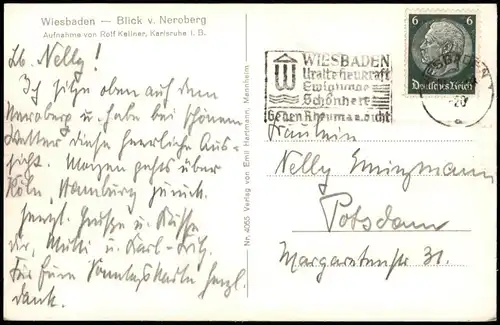 Wiesbaden — Blick v. Neroberg
Aufnahme von Rolf Kellner, Karlsruhe i. B.
Lb. Nelly!
Ich sitze oben auf dem
Neroberg u. habe bei schönem
Wetter diese herrliche Aus-
sicht. Morgen gehts über
Köln, Hamburg zurück.
Herzl. Grüsse u. Küsse
Dir, Mutti u. Karl-Fritz.
Für Eure Sonntagskarte herzl.
dank.
Nr. 4055 Verlag von Emil Hartmann, Mannheim
WIESBADEN
Uralte Heilkraft
Ewigjunge
Schönheit
Gegen Rheuma u. Gicht
WIESBADEN 1
20
6 6
Deutsches Reich
Fräulein
Nelly
Potsdam
Margaretenstr 31.